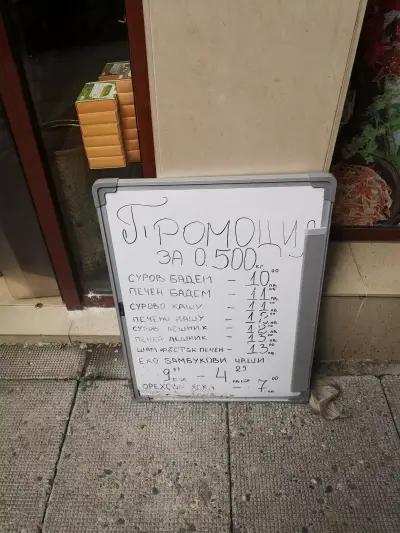 ПРОМОЦИЯ
ЗА 0.500 КГ
СУРОВ БАДЕМ - 10.00 ЛВ.
ПЕЧЕН БАДЕМ - 11.00 ЛВ.
СУРОВО КАШУ - 11.00 ЛВ.
ПЕЧЕНО КАШУ -
СУРОВ ЛЕШНИК -
ПЕЧЕН ЛЕШНИК - 13.00 ЛВ.
ШАМ ФЪСТЪК ПЕЧЕН - 13.00 ЛВ.
ЕКО БАМБУКОВИ ЧАШИ
ОРЕХОВИ ЯДКИ - 7.00 ЛВ.